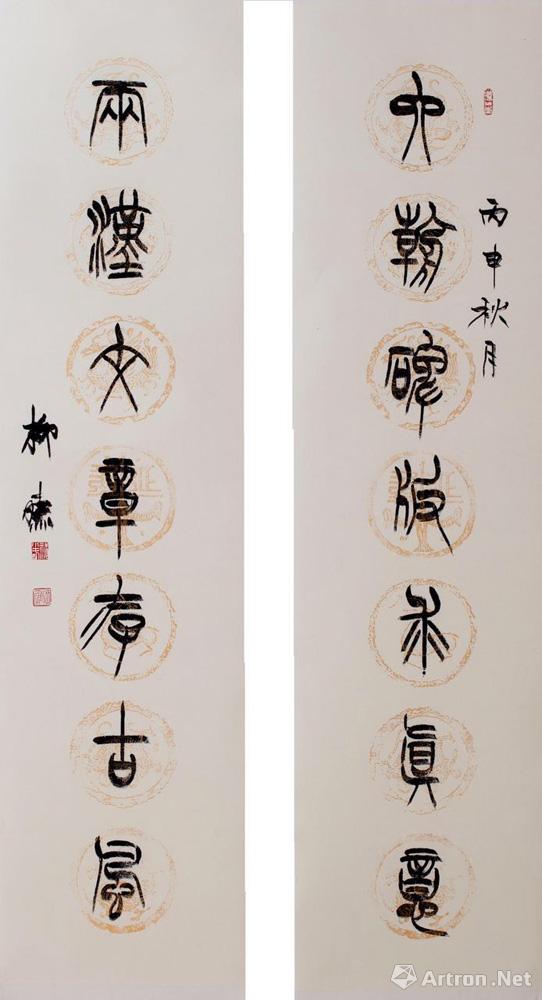 丙申秋月
六朝碑版求眞意
兩漢文章存古風
柳
Artron.Net